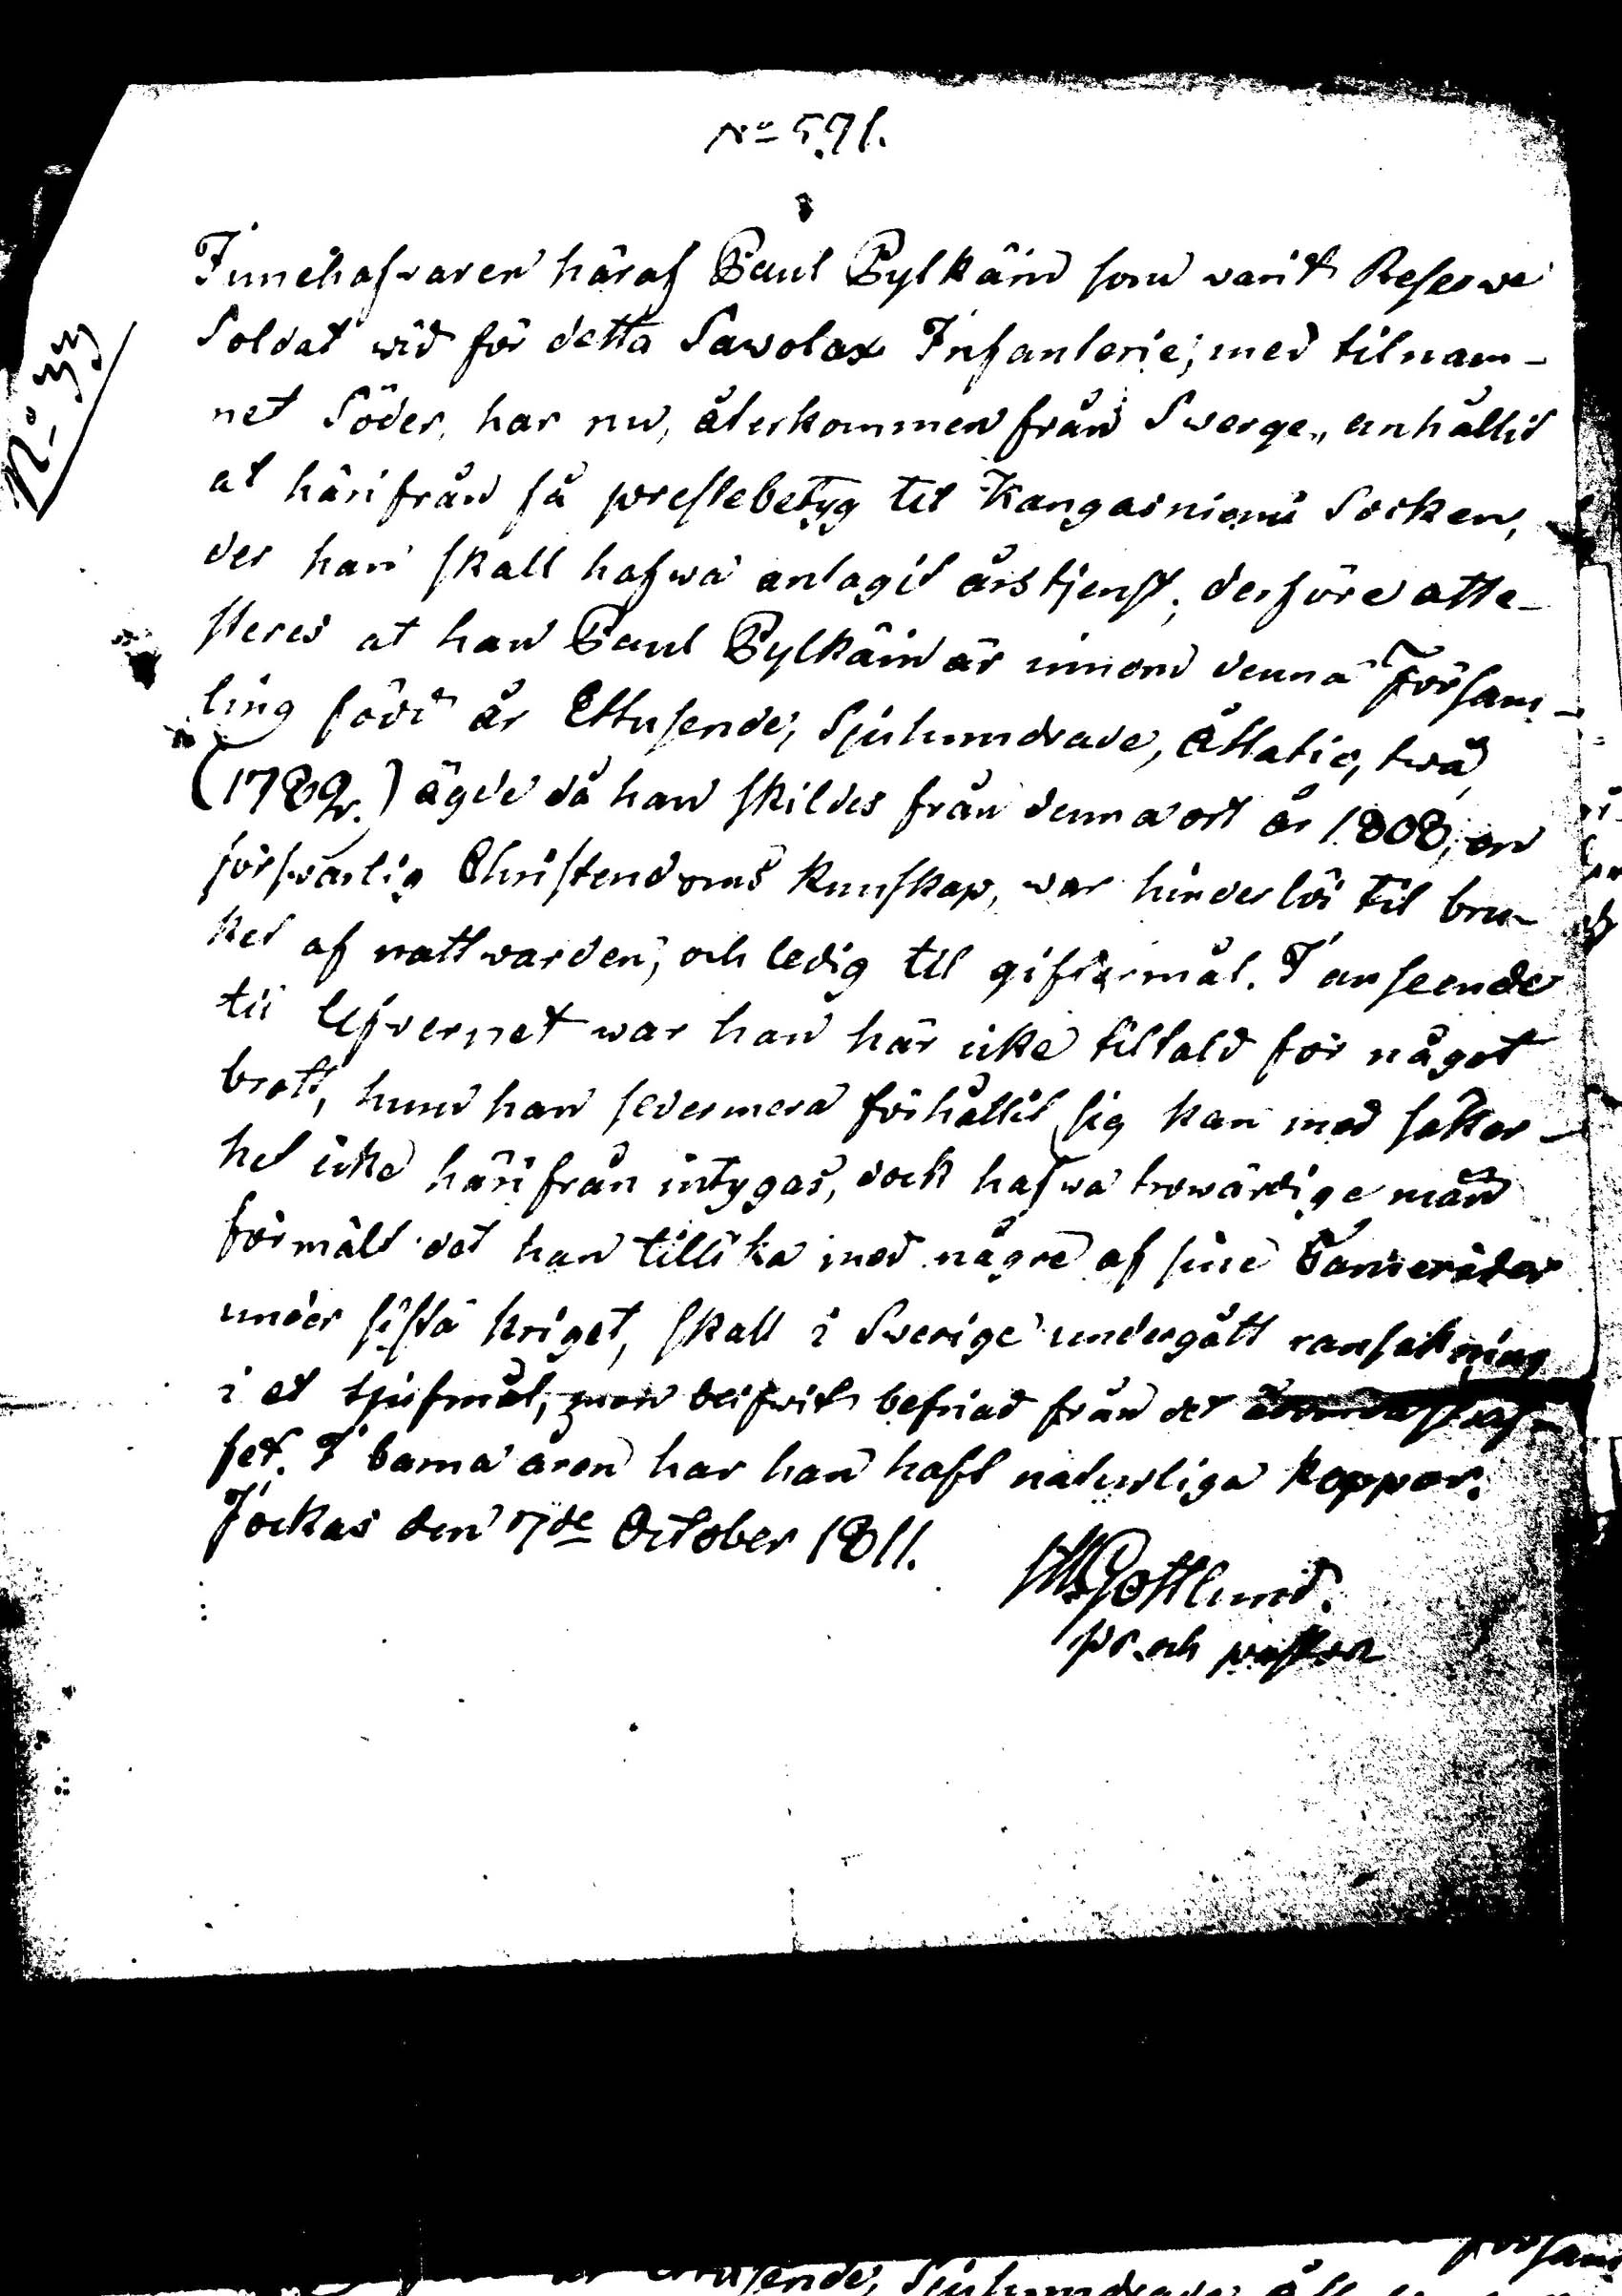 No 571.
No 33
Innehafwaren häraf Paul Pylkäin som varit Reserwe
Soldat wid för detta Sawolax Infanterie, med tilnam-
net Söder, har nu, återkommen från Swerge, anhållit
at härifrån få prestebetyg til Kangasniemi Socken,
der han skall hafwa antagit årstjenst; derföre atte-
steres at han Paul Pylkäin är innom denna Försam-
ling född år Ettusende, Sjuhundrade, Åttatio, twå
(1782.) ägde då han skildes från denna ort år 1808, en
förswarlig Christendoms kunskap, war hinderlös til bru-
ket af nattwarden, och ledig til giftermål. I anseende
til lefvernet war han här icke tiltald för något
brott, huru han sedermera förhållit sig kan med säker-
het icke härifrån intygas, dock hafwa trowärdige män
förmält det han tillika med några af sine Camerater
under sista kriget, skall i Swerige undergått ransakning
i et tjufmål, men blifwit befriad från det
set. I barna åren har han haft naturliga koppor.
Jockas den 17de October 1811.
Gottlund.
pr. och pastor